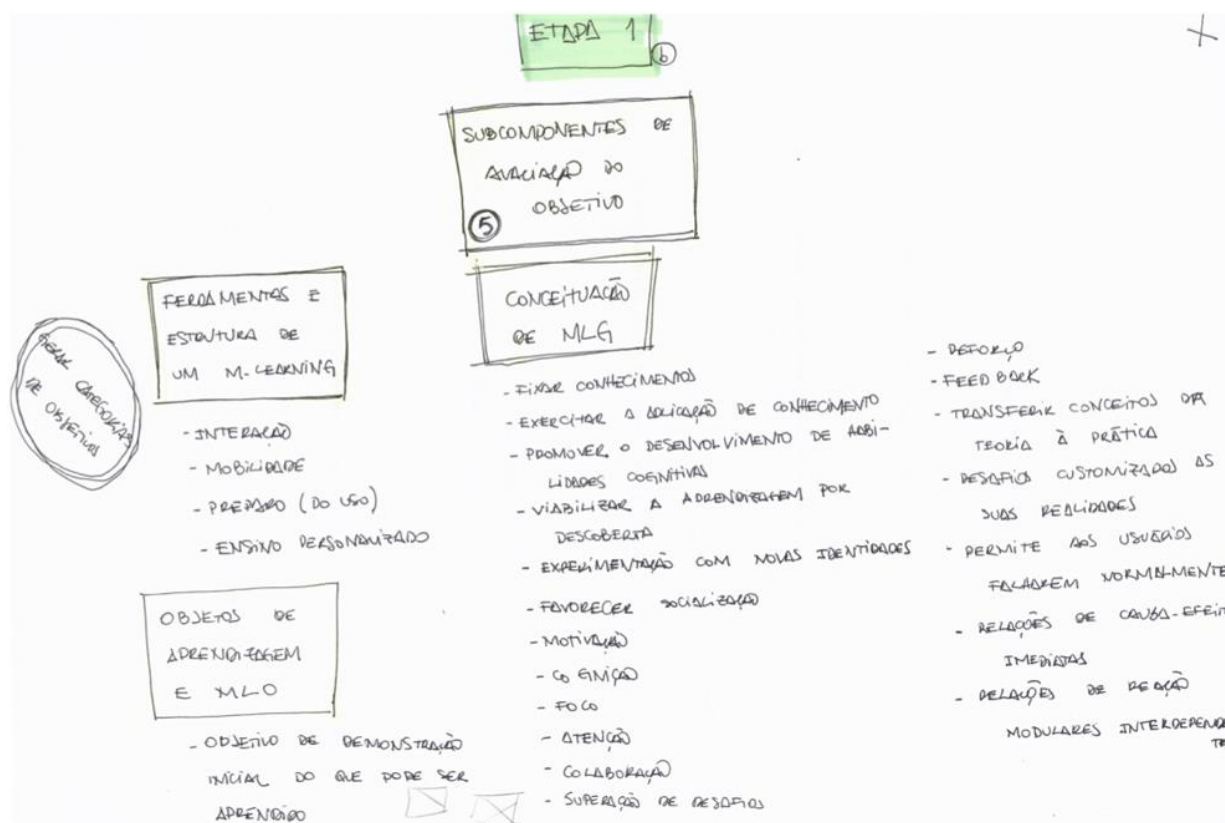 ETAPA 1
6
SUBCOMPONENTES DE
AVALIAÇÃO DO
OBJETIVO
5
GERAR CATEGORIAS
DE OBJETIVOS
FERRAMENTAS E
ESTRUTURA DE
UM M-LEARNING
- INTERAÇÃO
- MOBILIDADE
- PREPARO (DO USO)
- ENSINO PERSONALIZADO
OBJETOS DE
APRENDIZAGEM
E MLO
- OBJETIVO DE DEMONSTRAÇÃO
INICIAL DO QUE PODE SER
APRENDIDO
CONCEITUAÇÃO
DE MLG
- FIXAR CONHECIMENTOS
- EXERCITAR A APLICAÇÃO DE CONHECIMENTO
- PROMOVER O DESENVOLVIMENTO DE HABI-
LIDADES COGNITIVAS
- VIABILIZAR A APRENDIZAGEM POR
DESCOBERTA
- EXPERIMENTAÇÃO COM NOVAS IDENTIDADES
- FAVORECER SOCIALIZAÇÃO
- MOTIVAÇÃO
- COGNIÇÃO
- FOCO
- ATENÇÃO
- COLABORAÇÃO
- SUPERAÇÃO DE DESAFIOS
- REFORÇO
- FEEDBACK
- TRANSFERIR CONCEITOS DA
TEORIA À PRÁTICA
- DESAFIOS CUSTOMIZADOS AS
SUAS REALIDADES
- PERMITE AOS USUÁRIOS
FALHAREM NORMALMENTE
- RELAÇÕES DE CAUSA-EFEIT
IMEDIATAS
- RELAÇÕES DE REAÇÃO
MODULARES INTERDEPEND